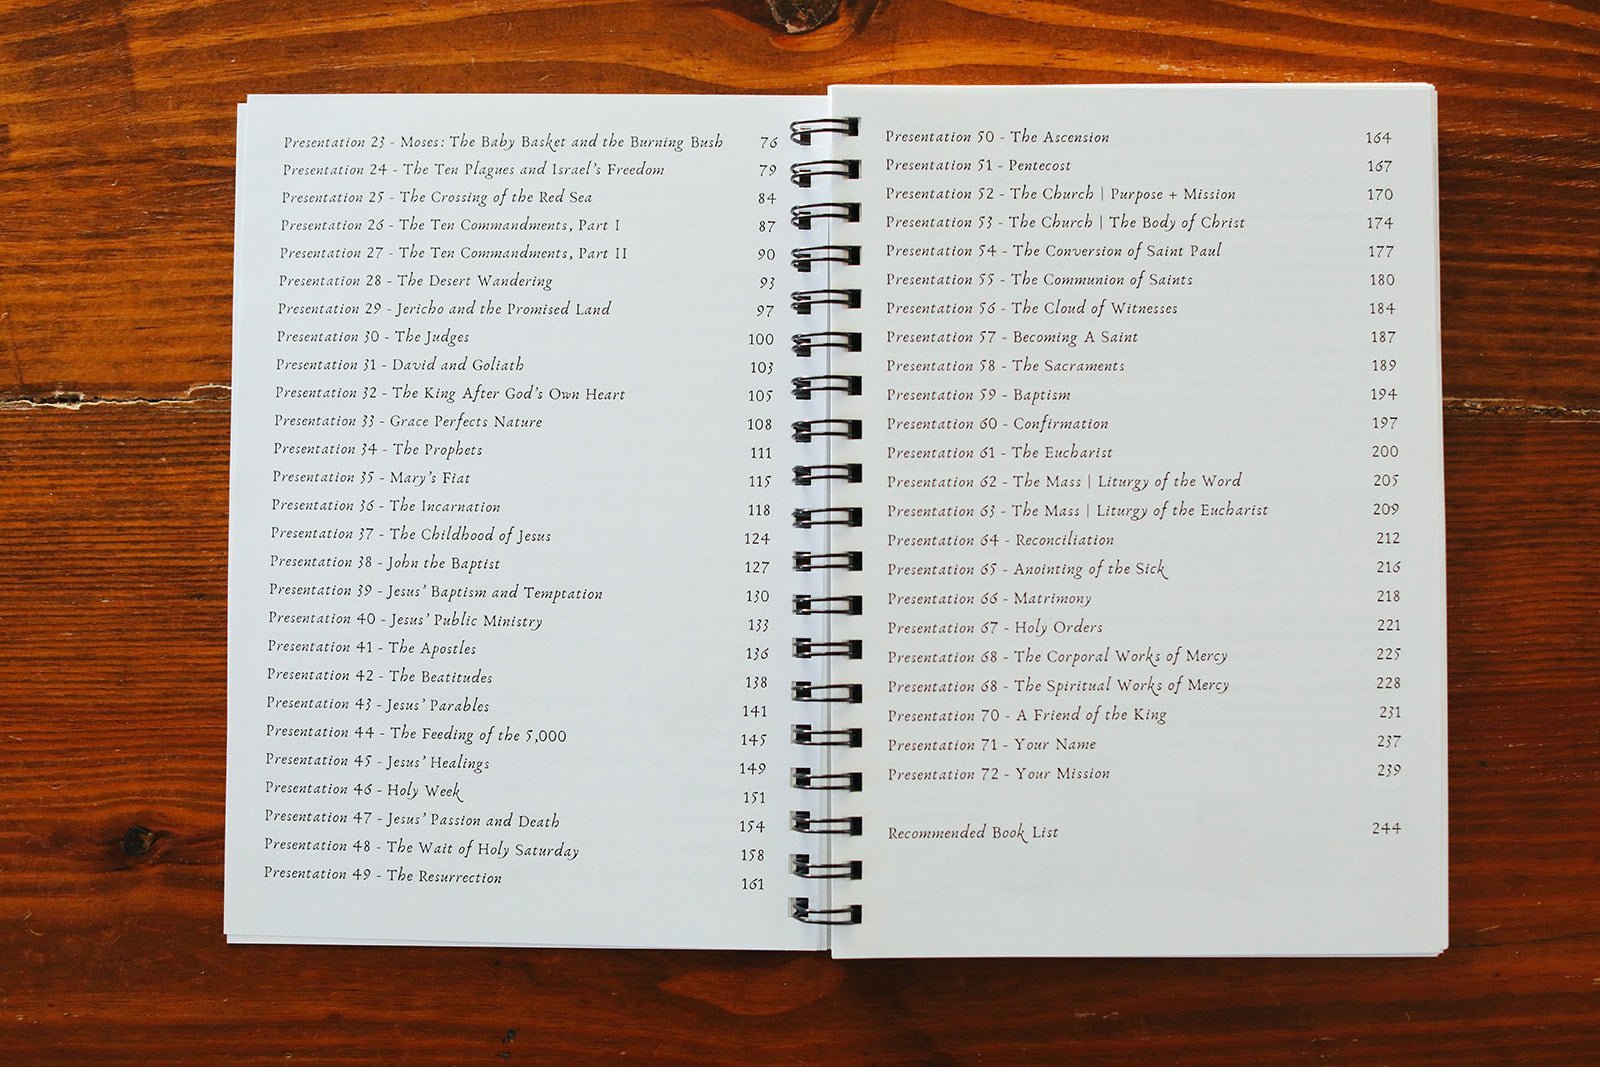 Presentation 23 - Moses: The Baby Basket and the Burning Bush 76
Presentation 24 - The Ten Plagues and Israel's Freedom 79
Presentation 25 - The Crossing of the Red Sea 84
Presentation 26 - The Ten Commandments, Part I 87
Presentation 27 - The Ten Commandments, Part II 90
Presentation 28 - The Desert Wandering 93
Presentation 29 - Jericho and the Promised Land 97
Presentation 30 - The Judges 100
Presentation 31 - David and Goliath 103
Presentation 32 - The King After God's Own Heart 105
Presentation 33 - Grace Perfects Nature 108
Presentation 34 - The Prophets 111
Presentation 35 - Mary's Fiat 115
Presentation 36 - The Incarnation 118
Presentation 37 - The Childhood of Jesus 124
Presentation 38 - John the Baptist 127
Presentation 39 - Jesus' Baptism and Temptation 130
Presentation 40 - Jesus' Public Ministry 133
Presentation 41 - The Apostles 136
Presentation 42 - The Beatitudes 138
Presentation 43 - Jesus' Parables 141
Presentation 44 - The Feeding of the 5,000 145
Presentation 45 - Jesus' Healings 149
Presentation 46 - Holy Week 151
Presentation 47 - Jesus' Passion and Death 154
Presentation 48 - The Wait of Holy Saturday 158
Presentation 49 - The Resurrection 161
Presentation 50 - The Ascension 164
Presentation 51 - Pentecost 167
Presentation 52 - The Church | Purpose + Mission 170
Presentation 53 - The Church | The Body of Christ 174
Presentation 54 - The Conversion of Saint Paul 177
Presentation 55 - The Communion of Saints 180
Presentation 56 - The Cloud of Witnesses 184
Presentation 57 - Becoming A Saint 187
Presentation 58 - The Sacraments 189
Presentation 59 - Baptism 194
Presentation 60 - Confirmation 197
Presentation 61 - The Eucharist 200
Presentation 62 - The Mass | Liturgy of the Word 205
Presentation 63 - The Mass | Liturgy of the Eucharist 209
Presentation 64 - Reconciliation 212
Presentation 65 - Anointing of the Sick 216
Presentation 66 - Matrimony 218
Presentation 67 - Holy Orders 221
Presentation 68 - The Corporal Works of Mercy 225
Presentation 68 - The Spiritual Works of Mercy 228
Presentation 70 - A Friend of the King 231
Presentation 71 - Your Name 237
Presentation 72 - Your Mission 239
Recommended Book List 244